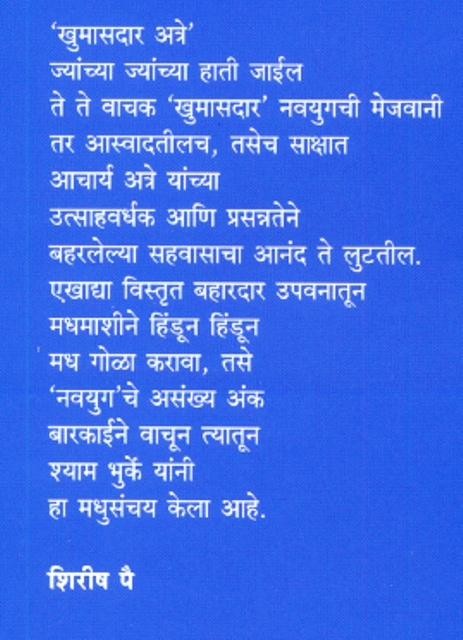 ‘खुमासदार अत्रे’
ज्यांच्या ज्यांच्या हाती जाईल
ते ते वाचक ‘खुमासदार’ नवयुगची मेजवानी
तर आस्वादतीलच, तसेच साक्षात
आचार्य अत्रे यांच्या
उत्साहवर्धक आणि प्रसन्नतेने
बहरलेल्या सहवासाचा आनंद ते लुटतील.
एखाद्या विस्तृत बहारदार उपवनातून
मधमाशीने हिंडून हिंडून
मध गोळा करावा, तसे
‘नवयुग’चे असंख्य अंक
बारकाईने वाचून त्यातून
श्याम भुर्के यांनी
हा मधुसंचय केला आहे.
शिरीष पै